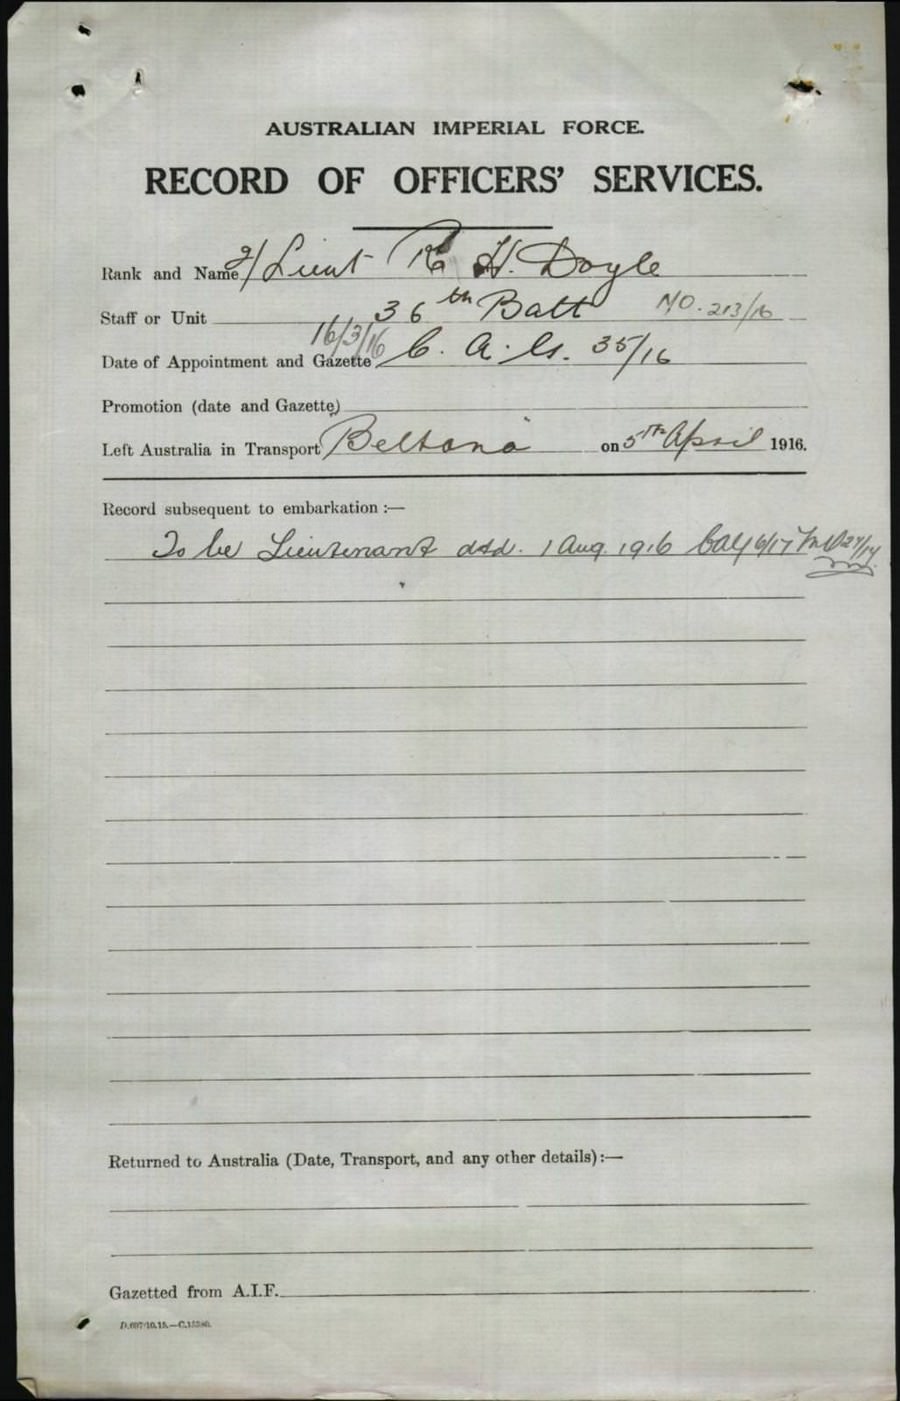 AUSTRALIAN IMPERIAL FORCE.
RECORD OF OFFICERS' SERVICES.
Rank and Name 2/Lieut R H. Doyle
Staff or Unit 36th Batt MO. 213/16
Date of Appointment and Gazette 16/3/16 C. A. G. 35/16
Promotion (date and Gazette)
Left Australia in Transport Beltana on 5th April 1916.
Record subsequent to embarkation :—
To be Lieutenant dtd. 1 Aug. 1916 CAG 6/17
Returned to Australia (Date, Transport, and any other details):—
Gazetted from A.I.F.